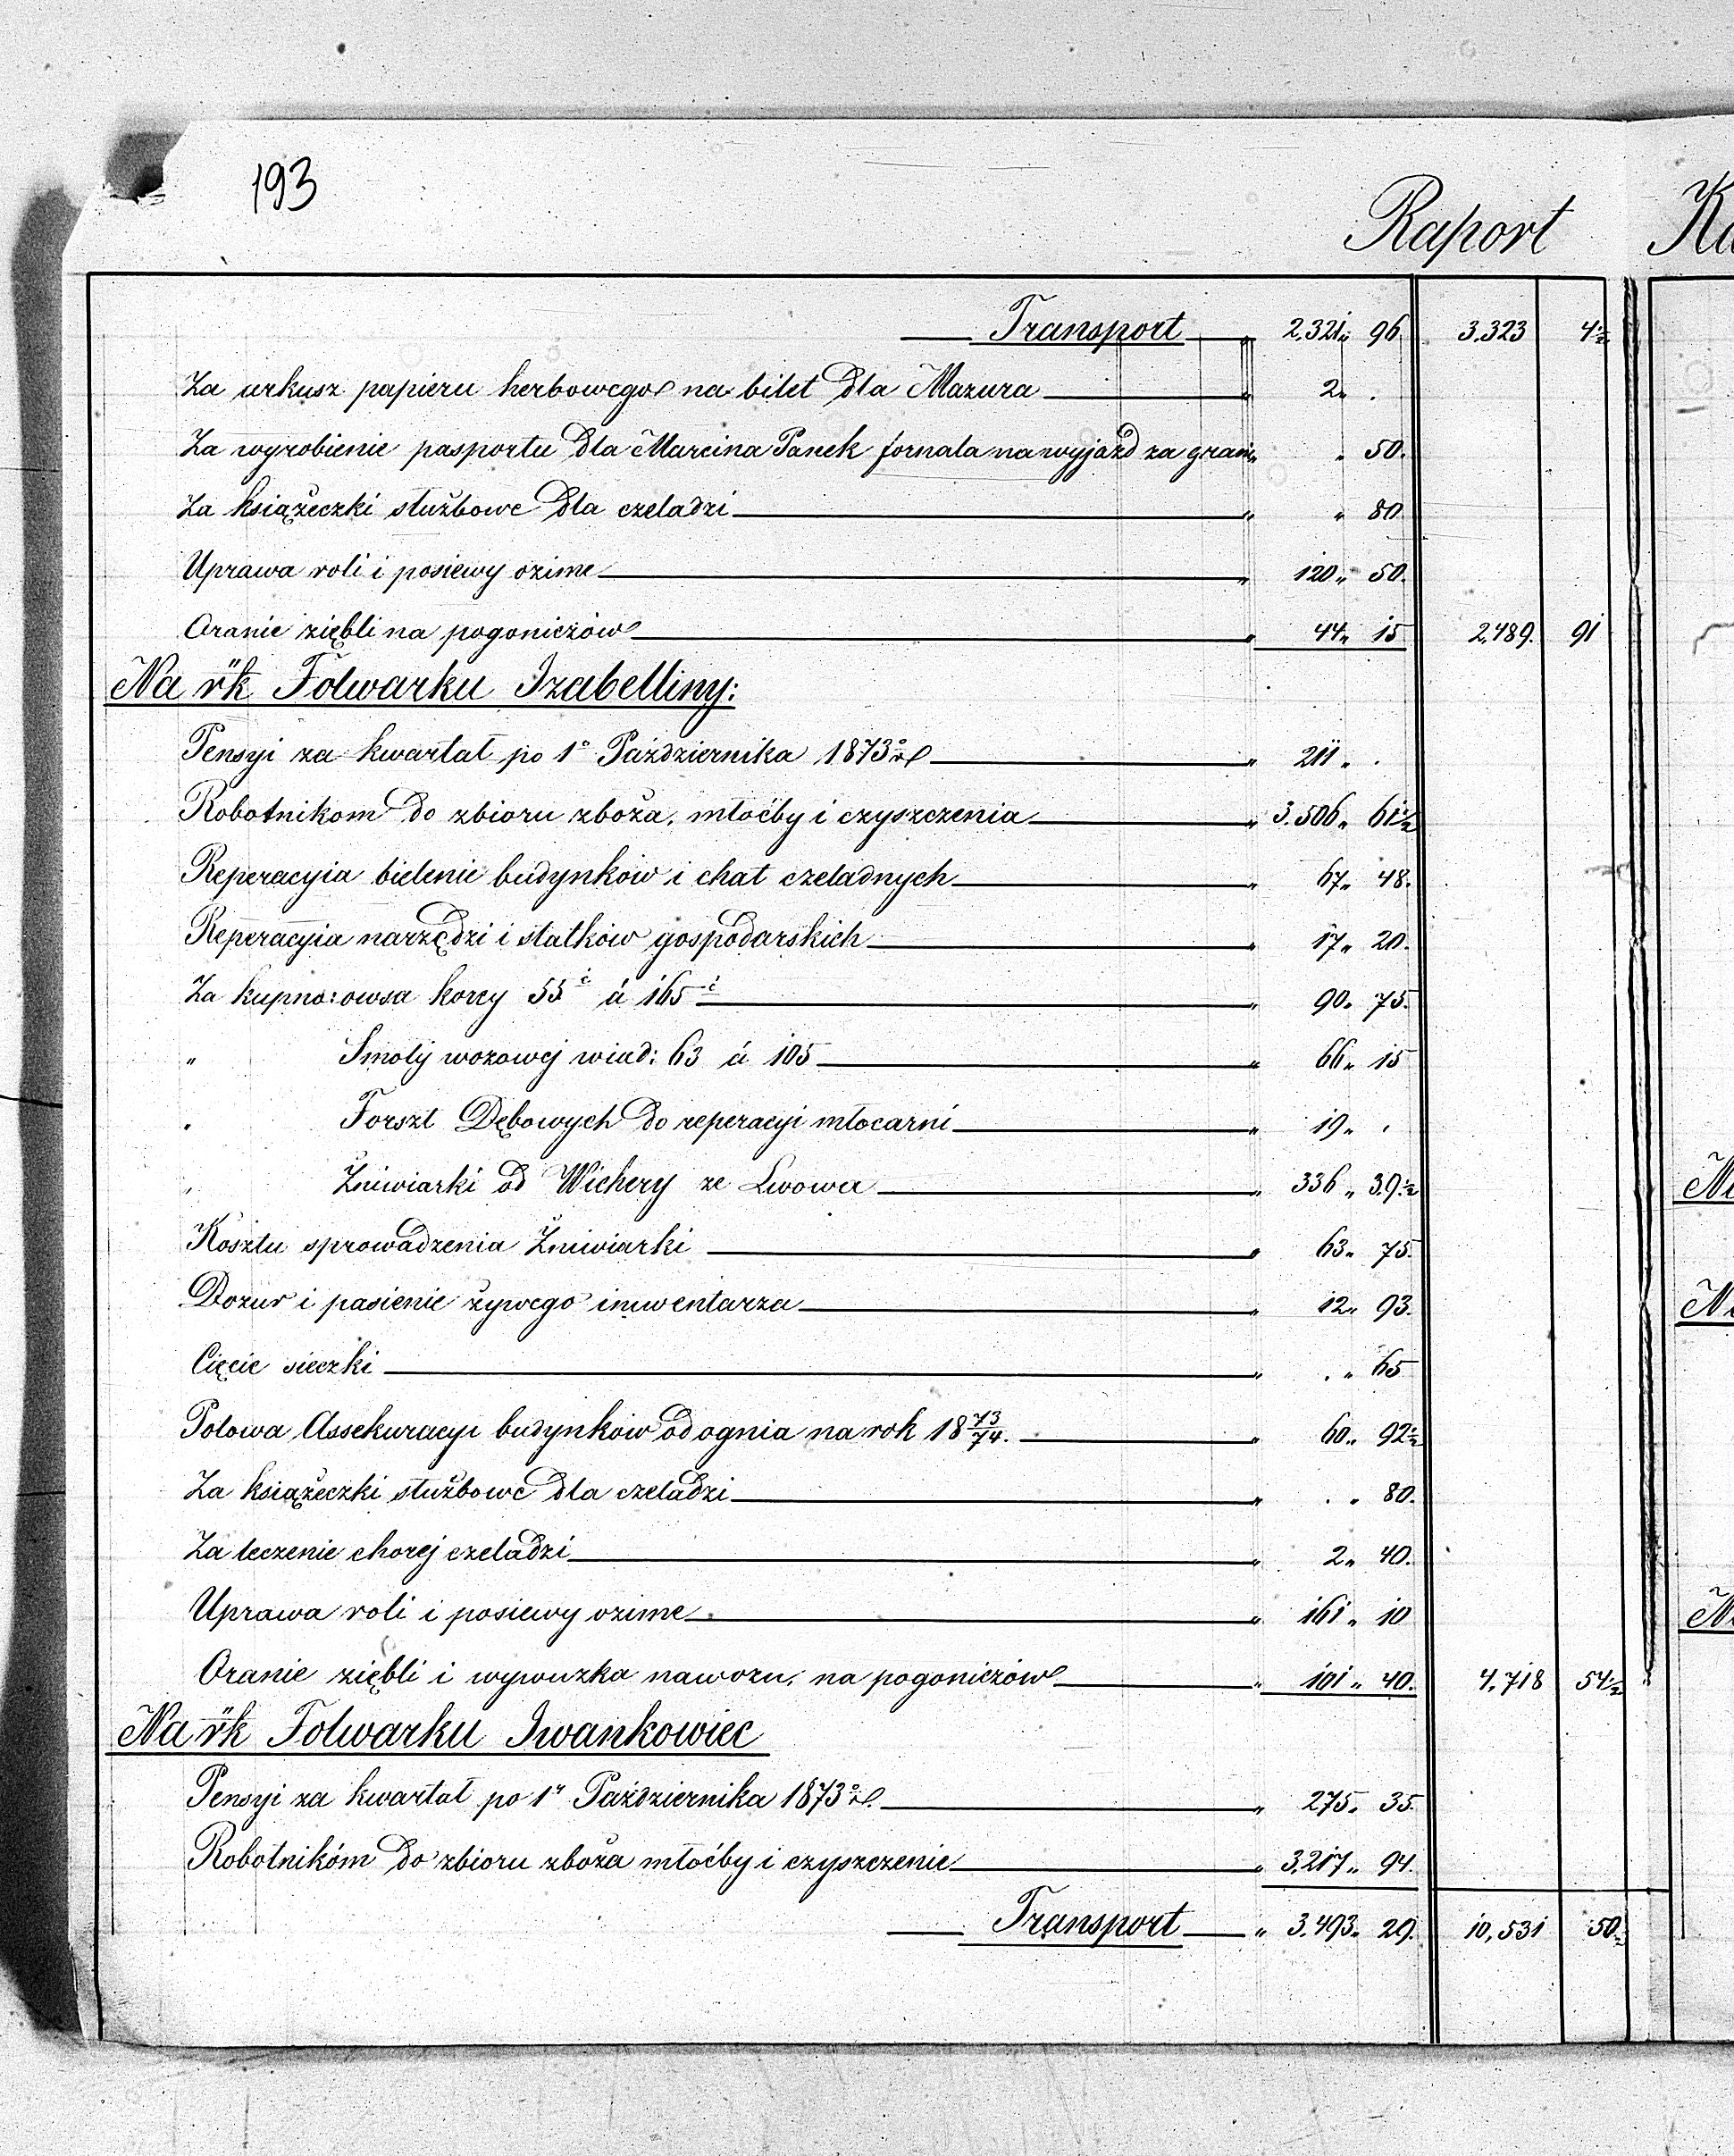 193
Raport
Transport „ 2.321„ 96 3.323 4½
Za arkusz papieru herbowego na bilet dla Mazura „ 2„ .
Za wyrobienie pasportu dla Marcina Panek fornala na wyjazd za gran: „ „ 50.
Za książeczki służbowe dla czeladzi „ „ 80
Uprawa roli i posiewy ozime „ 120„ 50.
Oranie ziębli na pogoniczów „ 44„ 15 2,489. 91
Na rk Folwarku Izabelliny:
Pensyi za kwartał po 1º Października 1873 r „ 211„ .
Robotnikom do zbioru zboża, młoćby i czyszczenia „ 3.506„ 61½
Reperacyia bielenie budynków i chat czeladnych „ 67„ 48.
Reperacyia narzędzi i statków gospodarskich „ 17„ 20.
Za kupno: owsa korcy 55 á 165 „ 90„ 75.
„ Smoły wozowej wiad: 63 á 105 „ 66„ 15
„ Forszt Dębowych do reperacyi młocarni „ 19„ .
„ Żniwiarki od Wichery ze Lwowa „ 336„ 39.½
Kosztu sprowadzenia Żniwiarki „ 63„ 75.
Dozór i pasienie żywego inwentarza „ 12„ 93.
Cięcie sieczki „ . „ 65
Połowa Assekuracyi budynków od ognia na rok 18 73/74. „ 60„ 92½
Za książeczki służbowe dla czeladzi „ . „ 80.
Za leczenie chorej czeladzi „ 2„ 40.
Uprawa roli i posiewy ozime „ 161„ 10
Oranie ziębli i wywuzka nawozu, na pogoniczów „ 101„ 40. 4,718 54½
Na rk Folwarku Iwankowiec
Pensyi za kwartał po 1º Października 1873 r. „ 275„ 35.
Robotnikóm do zbioru zboża młoćby i czyszczenie „ 3,217„ 94.
Transport „ 3.493„ 29. 10,531 50.½